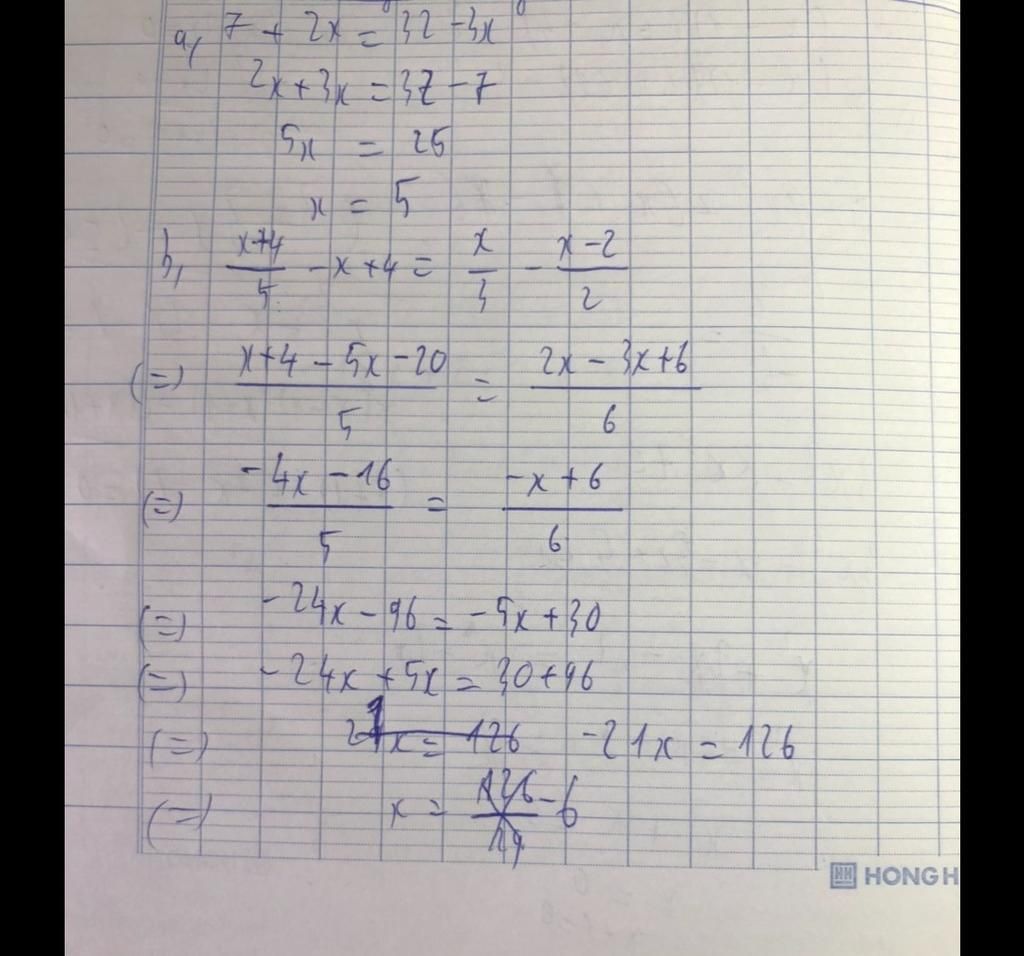 a, 7 + 2x = 32 - 3x
2x + 3x = 32 - 7
5x = 25
x = 5
b, \frac{x+4}{5} - x + 4 = \frac{x}{3} - \frac{x-2}{2}
(=) \frac{x+4-5x-20}{5} = \frac{2x-3x+6}{6}
(=) \frac{-4x-16}{5} = \frac{-x+6}{6}
(=) -24x - 96 = -5x + 30
(=) -24x + 5x = 30 + 96
(=) 21x = 126 -21x = 126
(=) x = \frac{126}{19} - 6
HONG H